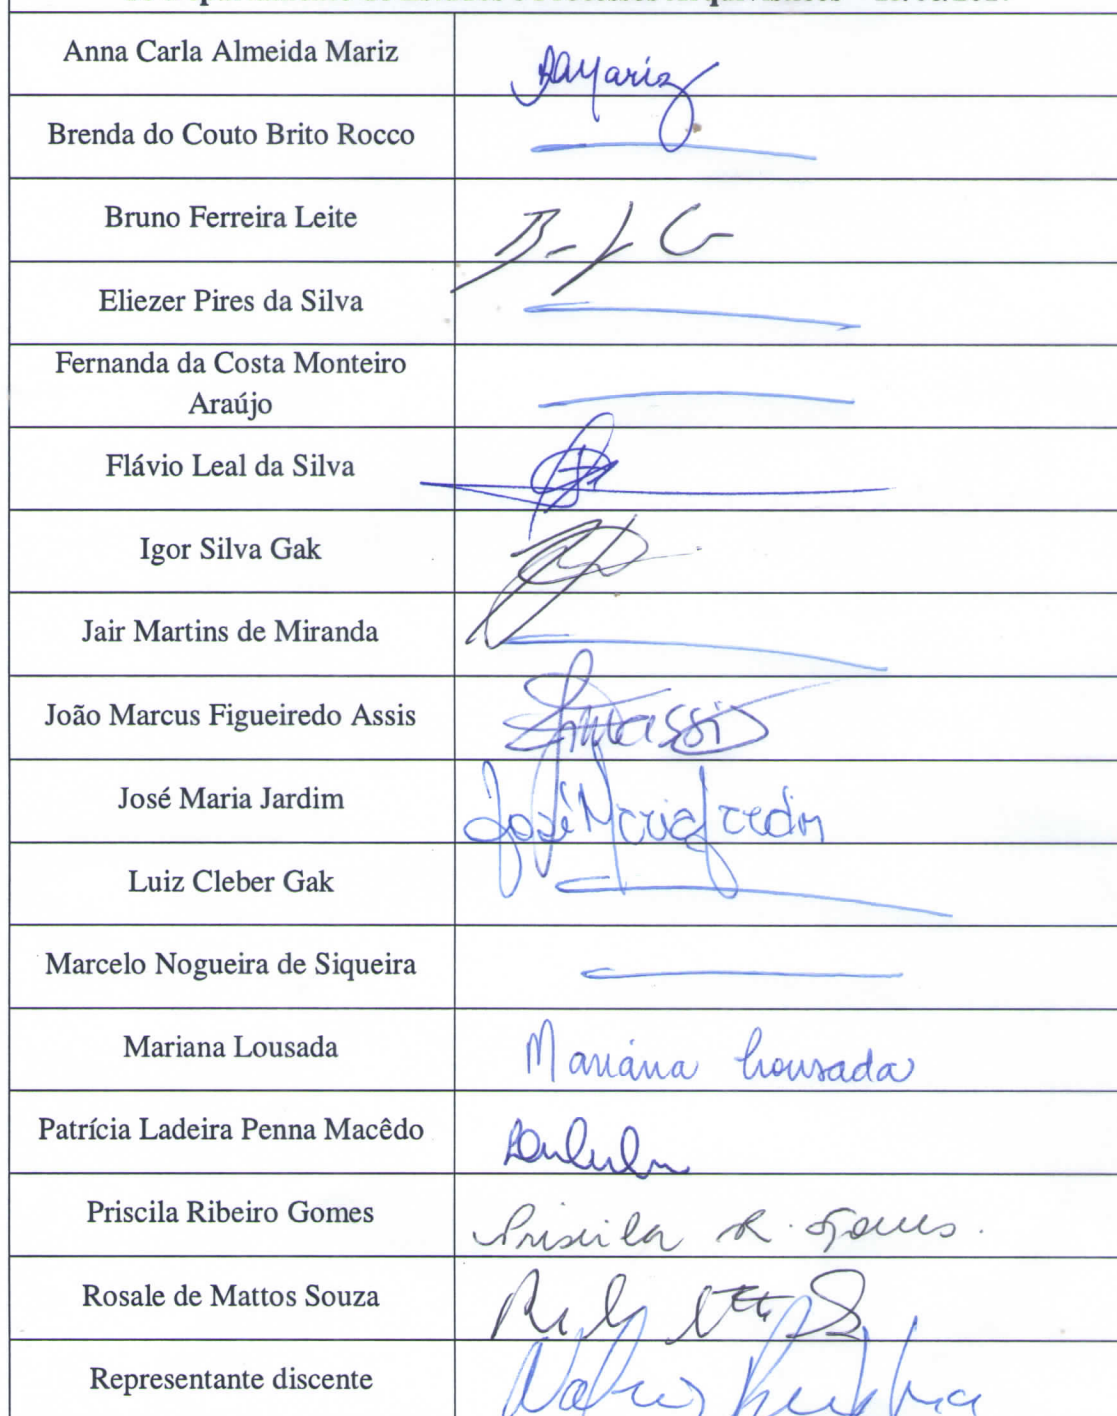 Anna Carla Almeida Mariz
Brenda do Couto Brito Rocco
Bruno Ferreira Leite
Eliezer Pires da Silva
Fernanda da Costa Monteiro
Araújo
Flávio Leal da Silva
Igor Silva Gak
Jair Martins de Miranda
João Marcus Figueiredo Assis
José Maria Jardim
José Maria Jardim
Luiz Cleber Gak
Marcelo Nogueira de Siqueira
Mariana Lousada
Mariana Lousada
Patrícia Ladeira Penna Macêdo
Priscila Ribeiro Gomes
Priscila R. Gomes.
Rosale de Mattos Souza
Representante discente